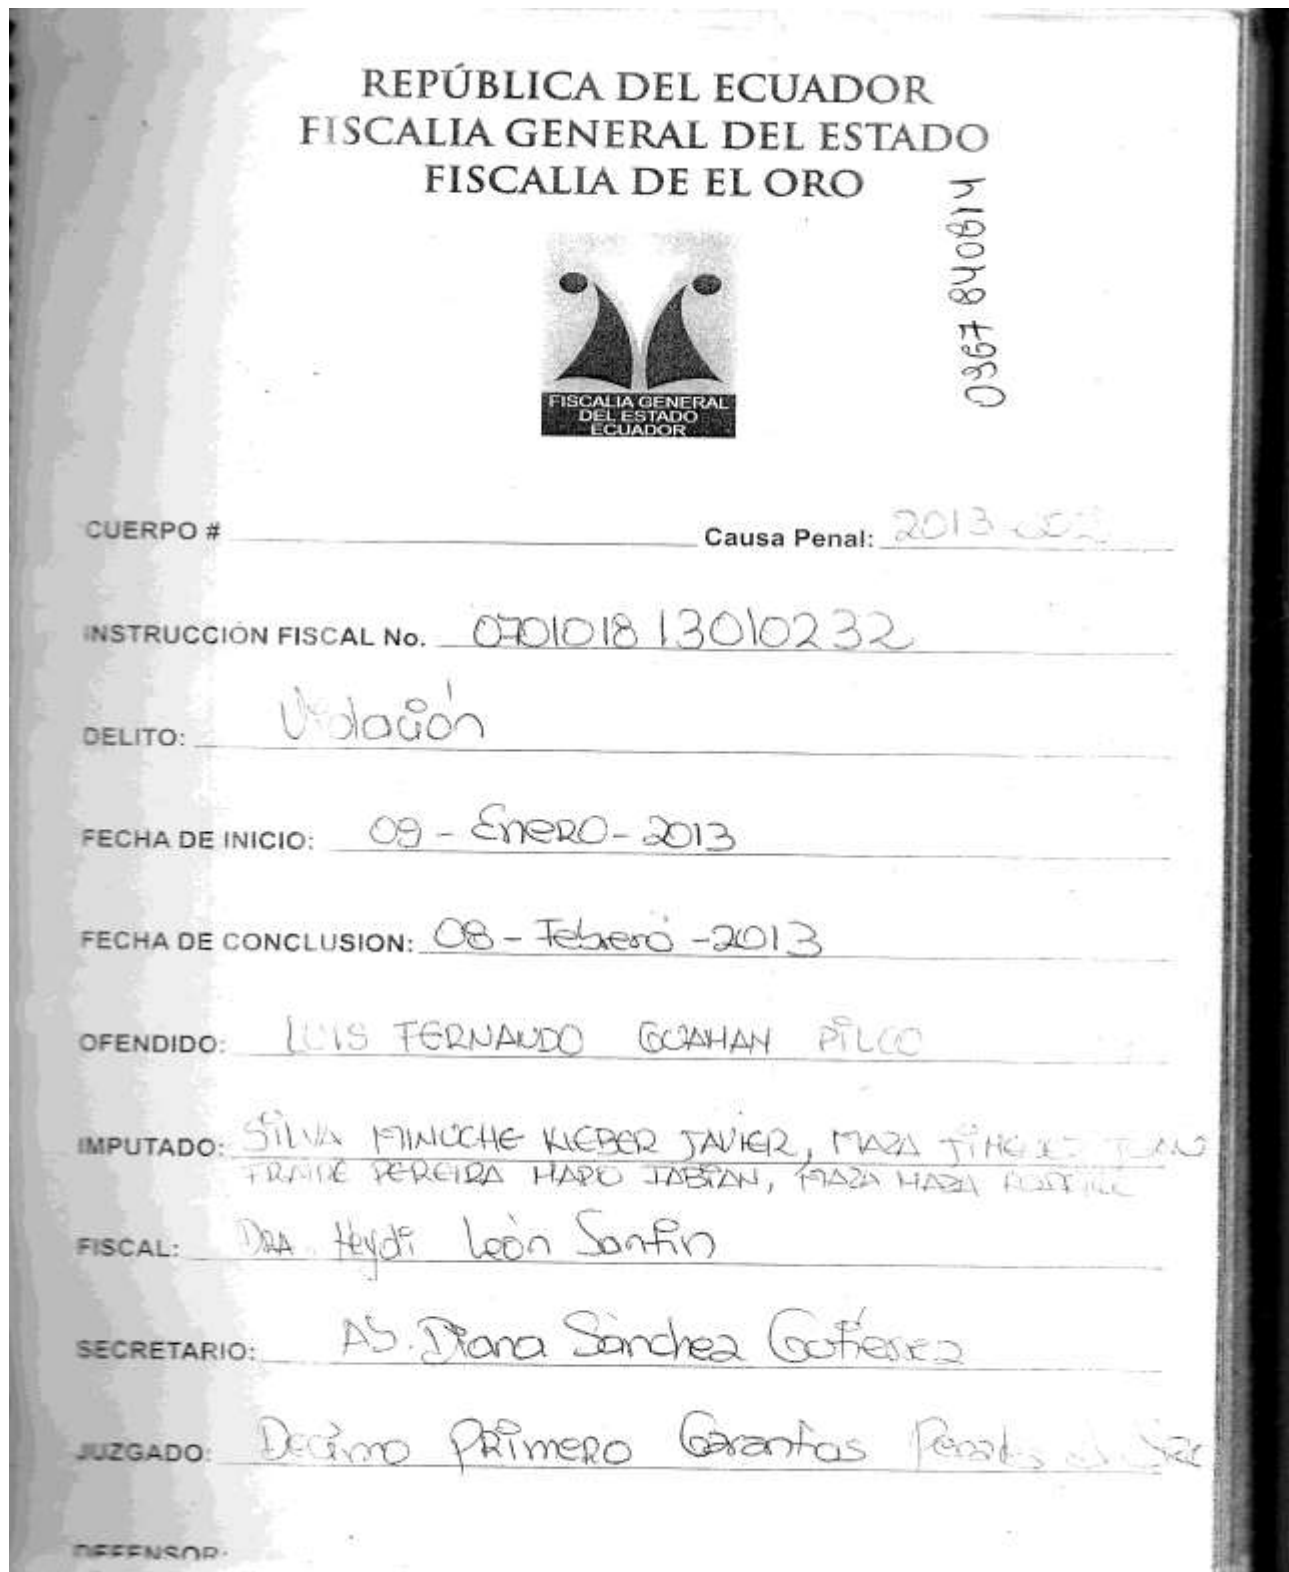 REPÚBLICA DEL ECUADOR
FISCALIA GENERAL DEL ESTADO
FISCALIA DE EL ORO
FISCALIA GENERAL
DEL ESTADO
ECUADOR
CUERPO # Causa Penal: 2013
INSTRUCCIÓN FISCAL No. 070101813010232
DELITO: Violación
FECHA DE INICIO: 09 - Enero - 2013
FECHA DE CONCLUSION: 08 - Febrero - 2013
OFENDIDO: LUIS FERNANDO GUAMAN PILCO
IMPUTADO: SILVA MINUCHE KLEBER JAVIER, MAZA
PEREIRA FABIAN, MAZA MAZA
FISCAL: DRA. Heydi León
SECRETARIO: AB. Diana Sánchez Gutierrez
JUZGADO: Decimo PRimeRo Garantias Penales
DEFENSOR: